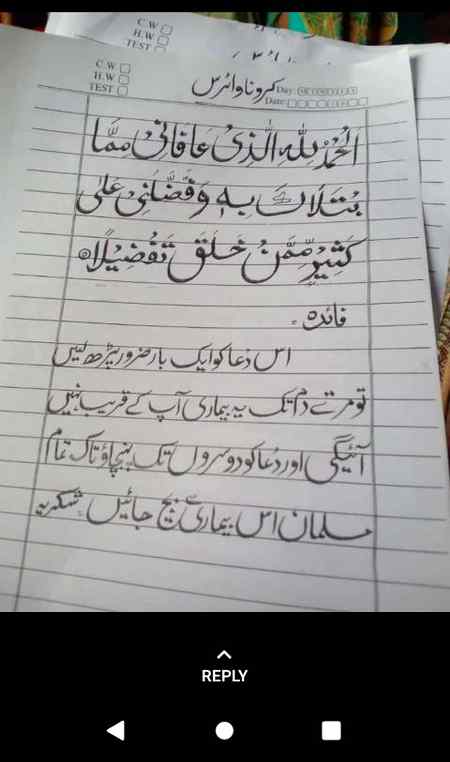 C.W
H.W
TEST
C.W
H.W
TEST
کرونا وائرس
Day:
Date:
اَلْحَمْدُ لِلّٰہِ الَّذِیْ عَافَانِیْ مِمَّا
بْتَلَاکَ بِہٖ وَفَضَّلَنِیْ عَلٰی
کَثِیْرٍ مِّمَّنْ خَلَقَ تَفْضِیْلًا
فائدہ
اس دُعا کو ایک بار ضرور پڑھ لیں
تو مرتے دم تک یہ بیماری آپ کے قریب نہیں
آئیگی اور دُعا کو دوسروں تک پہنچاؤ تاکہ تمام
مسلمان اس بیماری سے بچ جائیں شکریہ
REPLY